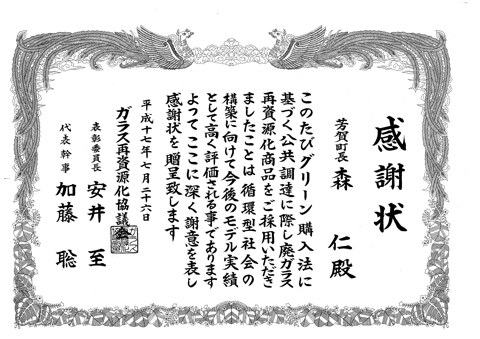 感謝状
芳賀町長 森 仁殿
このたびグリーン購入法に
基づく公共調達に際し廃ガラス
再資源化商品をご採用いただき
ましたことは循環型社会の
構築に向けて今後のモデル実績
として高く評価される事であります
よってここに深く謝意を表し
感謝状を贈呈致します
平成十七年七月二十六日
ガラス再資源化協議会
表彰委員長 安井 至
代表幹事 加藤 聡